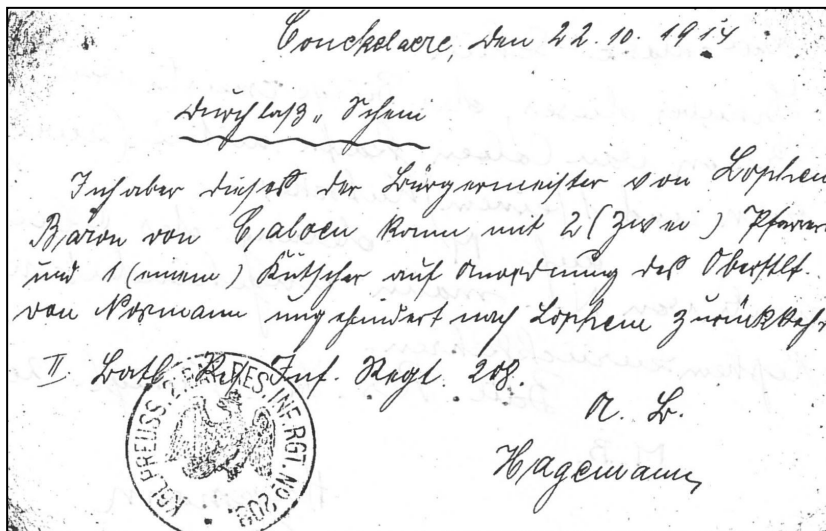 Couckelaere, den 22. 10. 1914
Durchlaß-Schein
Inhaber dieses der Bürgermeister von Lophem
Baron von Caloen kann mit 2 (zwei) Pfarrer
und 1 (einem) Kutscher auf Anordnung des Oberstlt.
von Normann ungehindert nach Lophem zurückkehr
II. Batl. Res. Inf. Regt. 208.
A. B.
Hagemann
KGL. PREUSS. 2. RES. INF. RGT. No 208